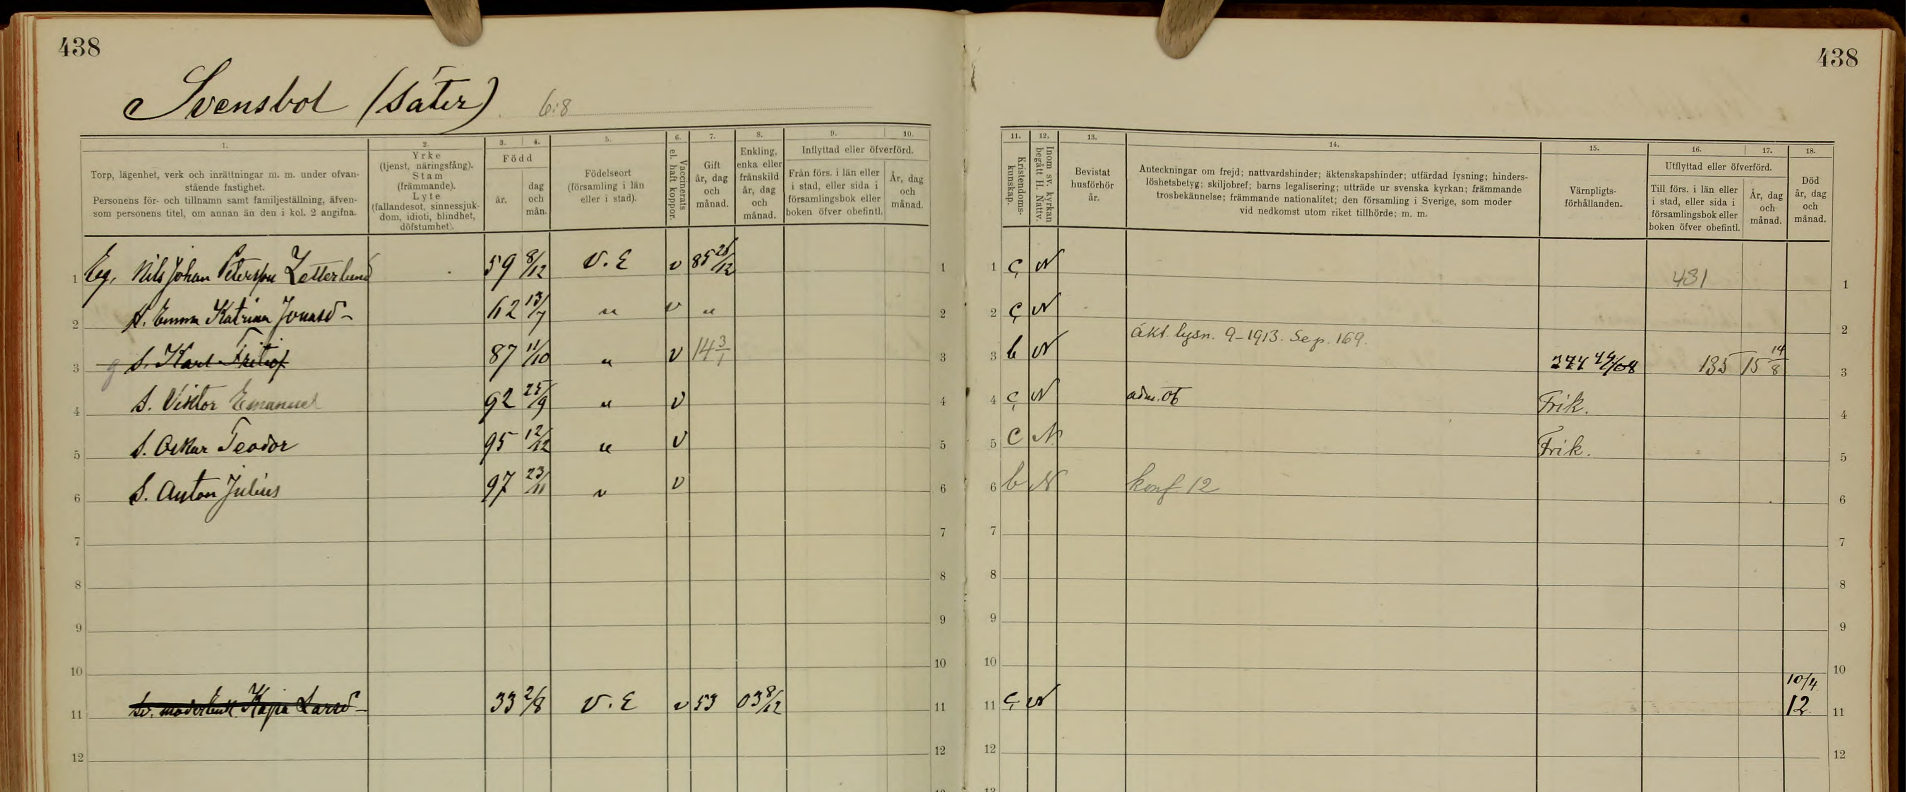 438
438
Svensbol (Säter) 6:8
1. 2. 3. 4. 5. 6. 7. 8. 9. 10.
Torp, lägenhet, verk och inrättningar m. m. under ofvan-
stående fastighet.
Personens för- och tillnamn samt familjeställning, äfven-
som personens titel, om annan än den i kol. 2 angifna.
Yrke
(tjenst, näringsfång).
Stam
(främmande).
Lyte
(fallandesot, sinnessjuk-
dom, idioti, blindhet,
döfstumhet).
Född
år.
dag
och
mån.
Födelseort
(församling i län
eller i stad).
Vaccinerats
el. haft koppor.
Gift
år, dag
och
månad.
Enkling,
enka eller
frånskild
år, dag
och
månad.
Inflyttad eller öfverförd.
Från förs. i län eller
i stad, eller sida i
församlingsbok eller
boken öfver obefintl.
År, dag
och
månad.
11. 12. 13. 14. 15. 16. 17. 18.
Kristendoms-
kunskap.
Inom sv. kyrkan
begått H. Nattv.
Bevistat
husförhör
år.
Anteckningar om frejd; nattvardshinder; äktenskapshinder; utfärdad lysning; hinders-
löshetsbetyg; skiljobref; barns legalisering; utträde ur svenska kyrkan; främmande
trosbekännelse; främmande nationalitet; den församling i Sverige, som moder
vid nedkomst utom riket tillhörde; m. m.
Värnpligts-
förhållanden.
Utflyttad eller öfverförd.
Till förs. i län eller
i stad, eller sida i
församlingsbok eller
boken öfver obefintl.
År, dag
och
månad.
Död
år, dag
och
månad.
1 Eg. Nils Johan Petersson Zetterlund 59 8/12 V. E v 85 26/12 1 1 Ç N 481 1
2 H. Emma Katrina Jonasd- 62 13/7 " v " 2 2 Ç N 2
3 g S. Karl Fritiof 87 11/10 " v 14 3/1 3 3 b N äkt. lysn. 9-1913. Sep. 169. 374 49/08 135 15 14/8 3
4 S. Viktor Emanuel 92 25/9 " v 4 4 Ç N adm. 06 Frik. 4
5 S. Oskar Teodor 95 12/12 " v 5 5 C N Frik. 5
6 S. Anton Julius 97 23/11 " v 6 6 b N konf. 12 6
7 7 7 7
8 8 8 8
9 9 9 9
10 10 10 10
11 Sv. moder Enk. Kajsa Larsd- 33 2/8 V. E v 53 03 8/12 11 11 Ç N 10/4 12 11
12 12 12 12